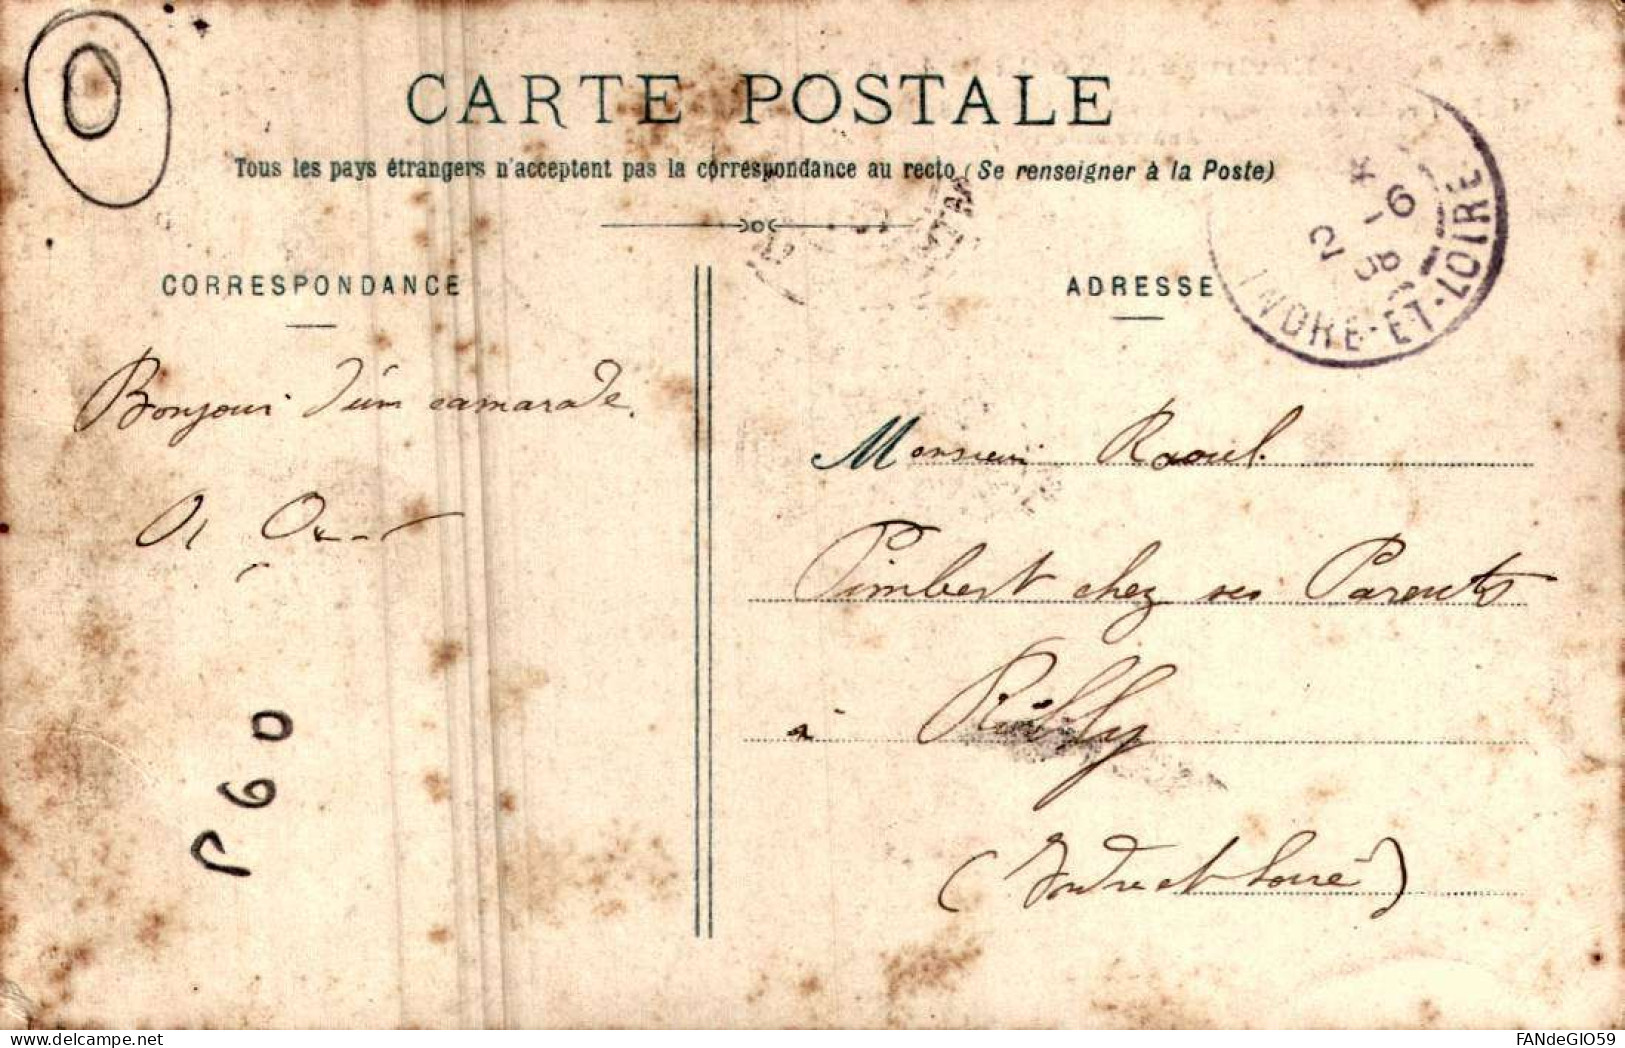 CARTE POSTALE
Tous les pays étrangers n'acceptent pas la correspondance au recto (Se renseigner à la Poste)
CORRESPONDANCE
ADRESSE
INDRE-ET-LOIRE
Bonjour d'un camarade.
Monsieur Raoul
Pimbert chez ses Parents
à Rilly
(Indre et Loire)
P60
www.delcampe.net
FANdeGIO59